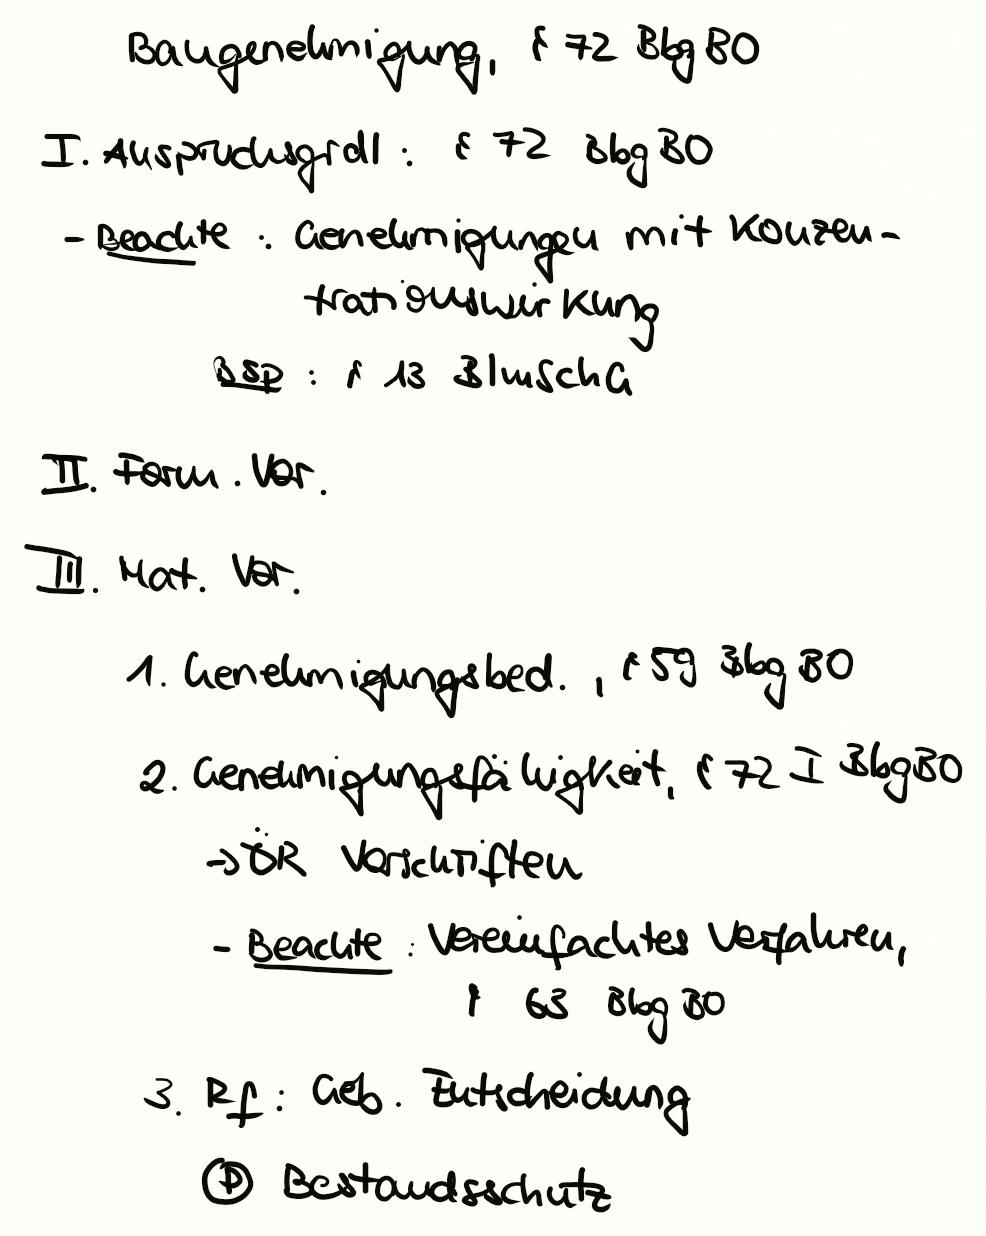 Baugenehmigung, § 72 BbgBO
I. Anspruchsgrdl: § 72 BbgBO
- Beachte: Genehmigungen mit Konzen-
trationswirkung
Bsp: § 13 BImSchG
II. Form. Vor.
III. Mat. Vor.
1. Genehmigungsbed., § 59 BbgBO
2. Genehmigungsfähigkeit, § 72 I BbgBO
→ ÖR Vorschriften
- Beachte: Vereinfachtes Verfahren,
§ 63 BbgBO
3. Rf: Geb. Entscheidung
Ⓟ Bestandsschutz